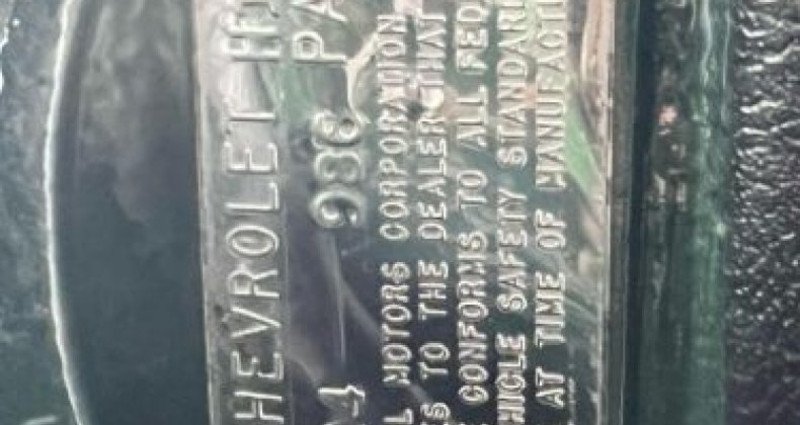 HEVROLET
4 986 PA
MOTORS CORPORATION
TO THE DEALER THAT
CONFORMS TO ALL FED
HICLE SAFETY STANDAR
AT TIME OF MANUFACT